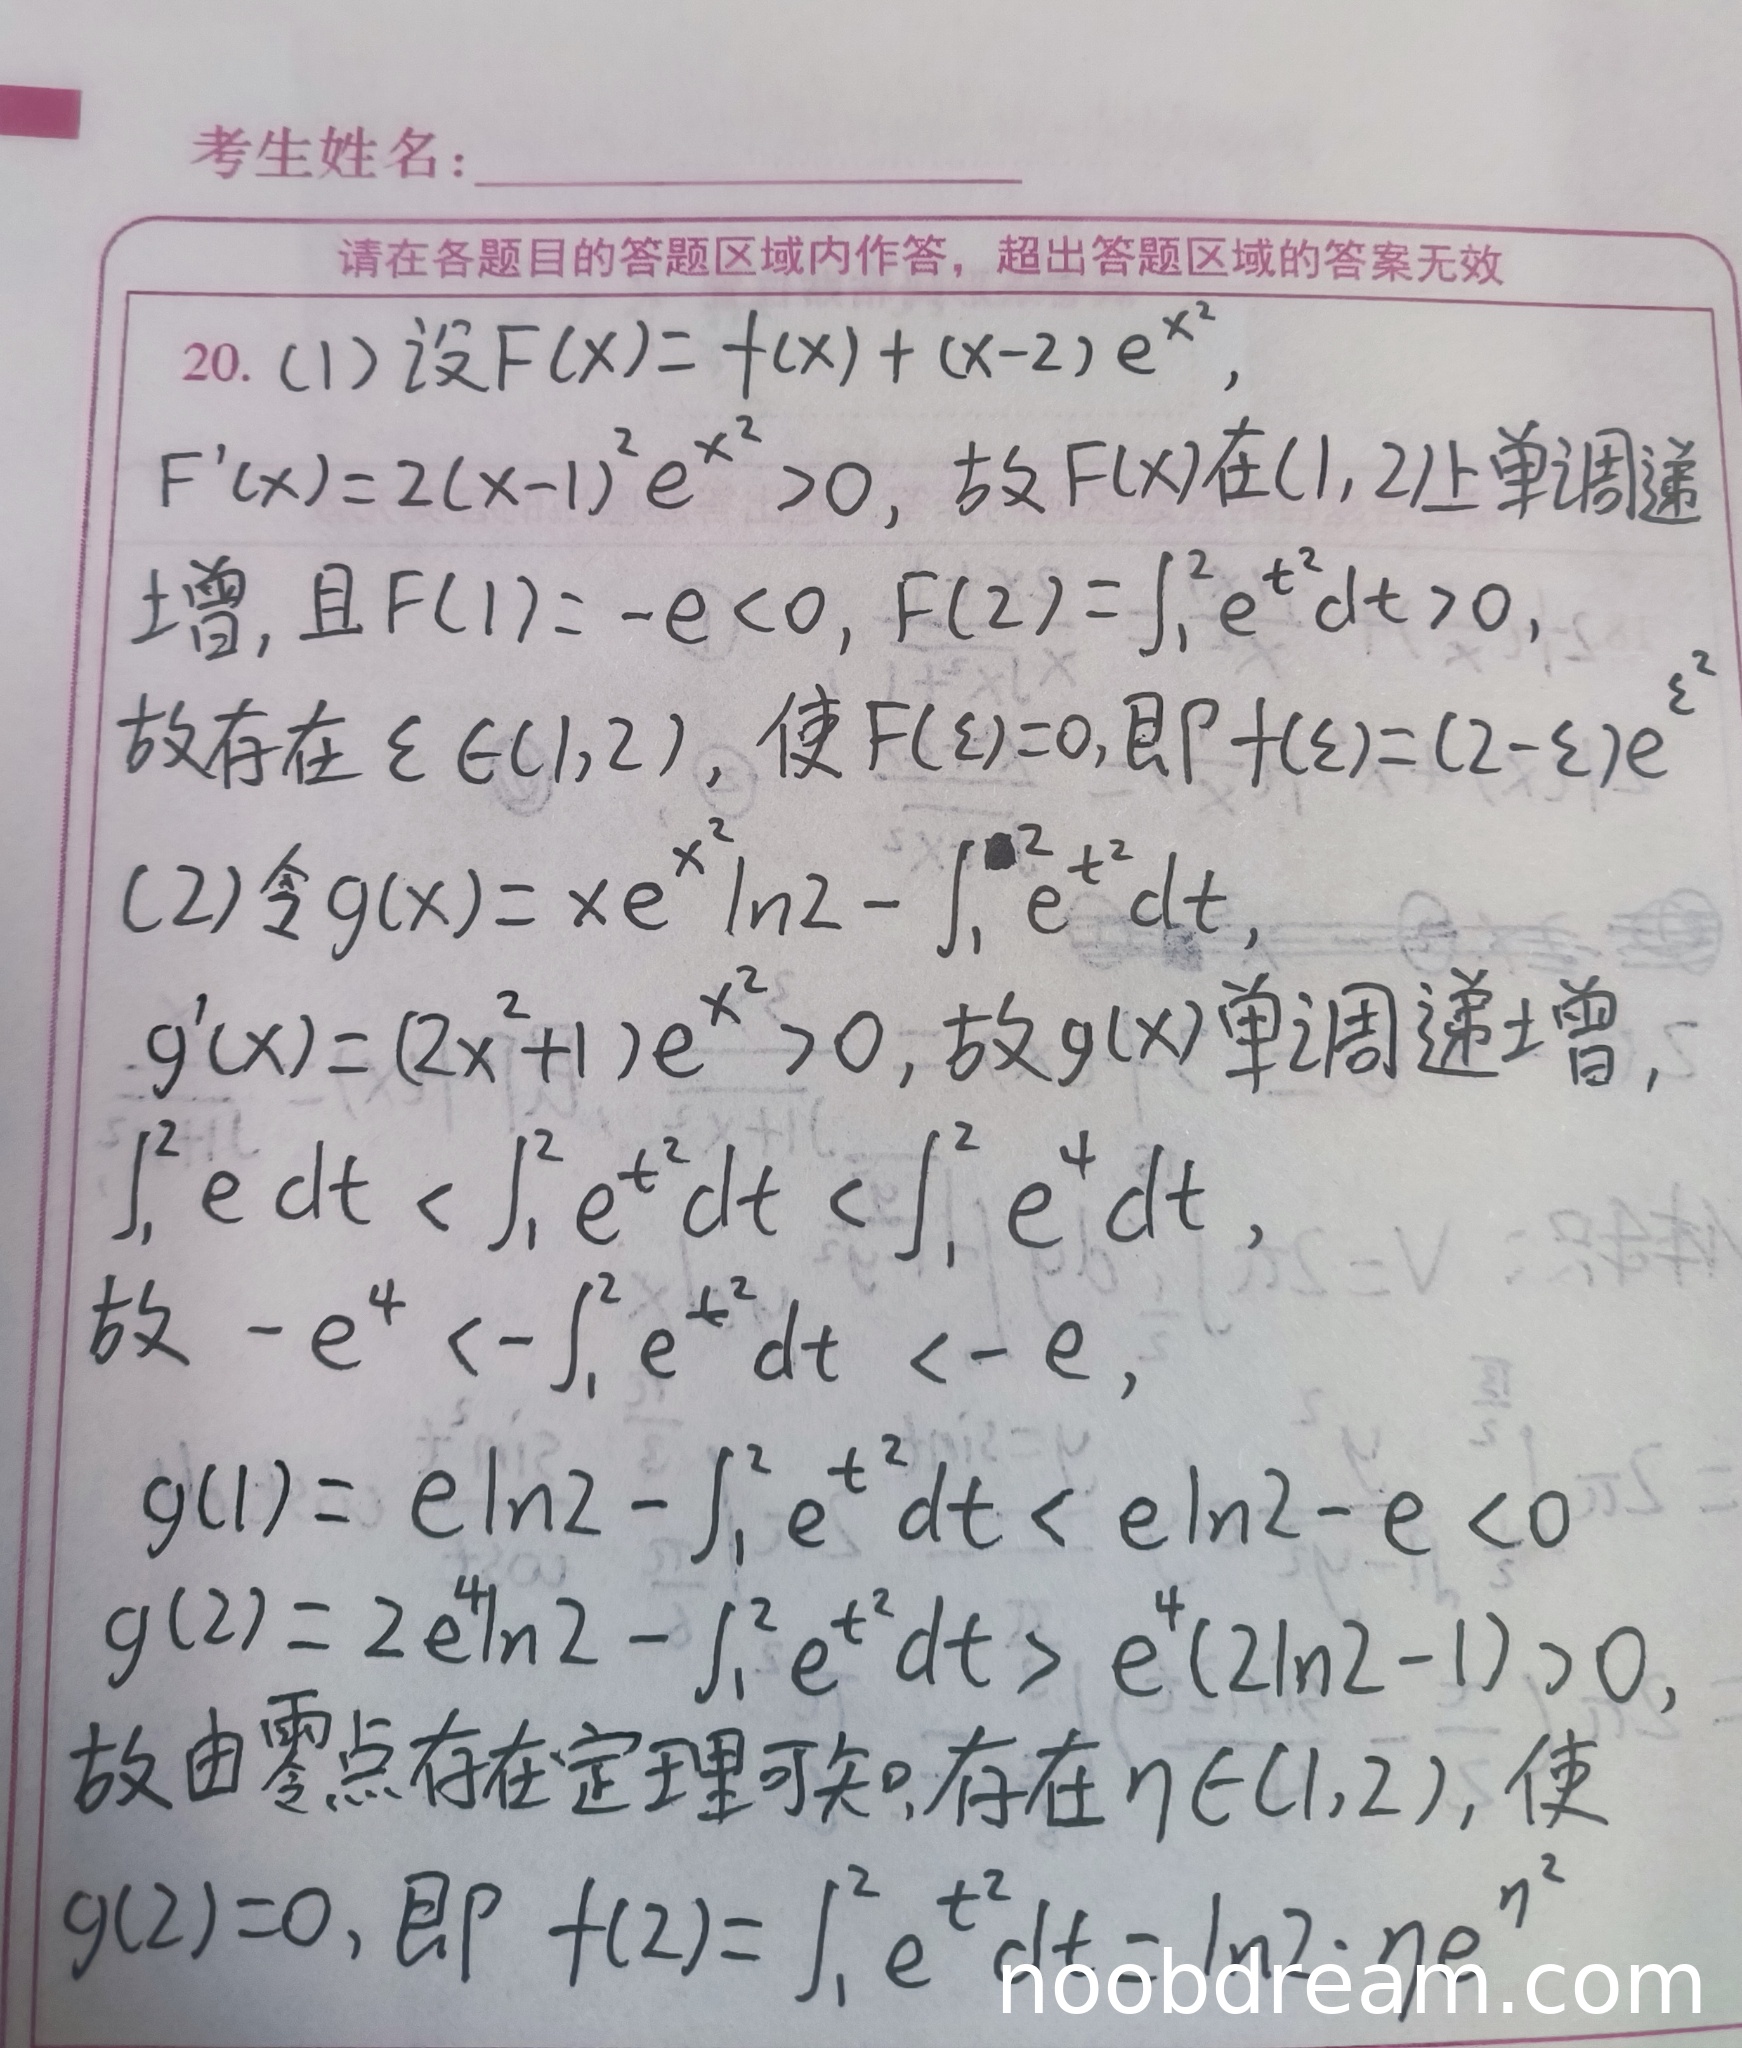 考生姓名:
请在各题目的答题区域内作答，超出答题区域的答案无效
20. (1) 设F(x)= f(x)+(x-2)e^{x^2},
F'(x)=2(x-1)^2e^{x^2}>0, 故F(x)在(1,2)上单调递
增, 且F(1)=-e<0, F(2)=∫_1^2 e^{t^2}dt>0,
故存在ξ∈(1,2), 使F(ξ)=0,即f(ξ)=(2-ξ)e^{ξ^2}
(2)令g(x)=xe^{x^2}ln2-∫_1^2 e^{t^2}dt,
g'(x)=(2x^2+1)e^{x^2}>0, 故g(x)单调递增,
∫_1^2 e dt<∫_1^2 e^{t^2}dt<∫_1^2 e^4dt,
故 -e^4<-∫_1^2 e^{t^2}dt<-e,
g(1)=eln2-∫_1^2 e^{t^2}dt<eln2-e<0
g(2)=2e^4ln2-∫_1^2 e^{t^2}dt>e^4(2ln2-1)>0,
故由零点存在定理可知,存在η∈(1,2), 使
g(2)=0, 即 f(2)=∫_1^2 e^{t^2}dt=ln2·ηe^{η^2}
noobdream.com